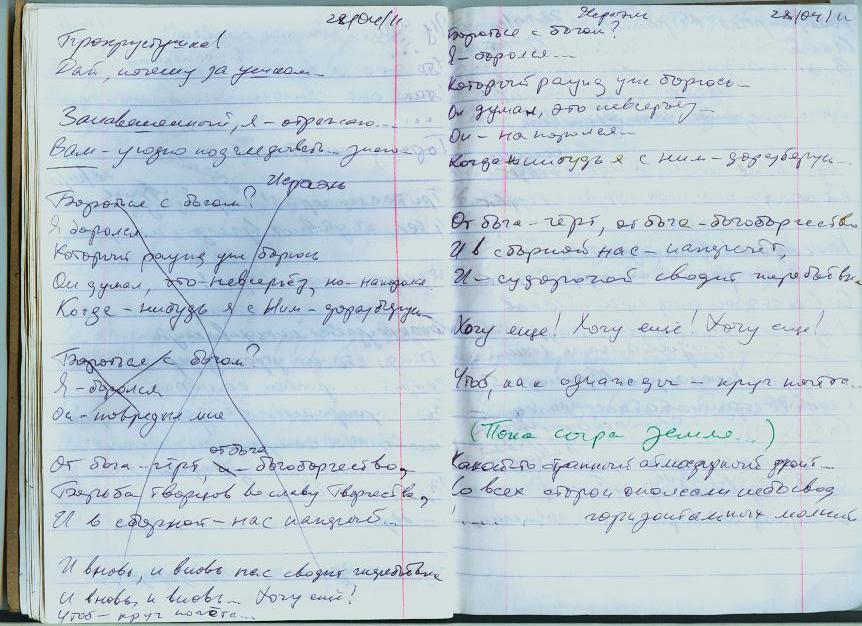 28/04/11
Прокрустушка!
Дай, почему за ушком...
Занавешенный, я – отражаю...
Вам – угодно подглядывать...
Израэль
Бороться с богом?
Я боролся...
Который раунд уже борюсь
Он думал, это – невсерьёз, но – напоролся
Когда – нибудь я с Ним – доразберусь...
Бороться с богом?
Я – боролся
Он – повредил мне
От бога – чёрт, от бога – богоборчество,
Борьба Творцов во славу Творчества,
И в сборной – нас
И вновь, и вновь нас сводит жеребьёвка
И вновь, и вновь... Хочу ещё!
Чтоб – круг почёта...
Израэль
28/04/11
Бороться с богом?
Я – боролся...
Который раунд уже борюсь...
Он думал, это невсерьёз...
Он – напоролся...
Когда нибудь я с ним – доразберусь...
От бога – чёрт, от бога – богоборчество
И в сборной нас –
И – судорогой сводит жеребьёвка
Хочу еще! Хочу ещё! Хочу ещё!
Чтоб, как однажды – круг почёта...
(Пока сыра земля...)
Какой-то странный атмосферный фронт...
Со всех сторон опоясали небосвод
горизонтальных молний